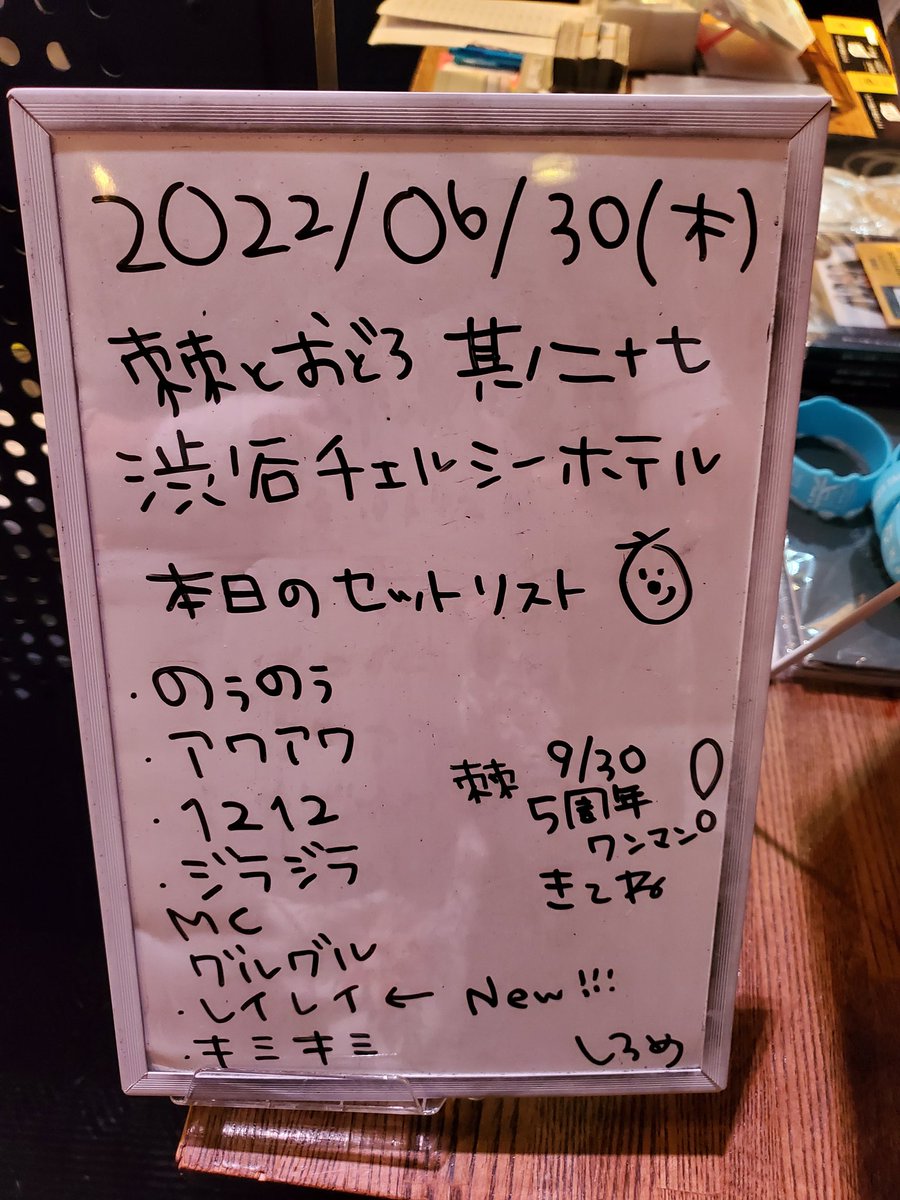 2022/06/30(木)
棘とおどろ 其ノ二十七
渋谷チェルシーホテル
本日のセットリスト
・のうのう
・アワアワ
・1212
・ジラジラ
MC
グルグル
・レイレイ← New!!!
・キミキミ
棘 9/30
5周年
ワンマン!
きてね
しろめ